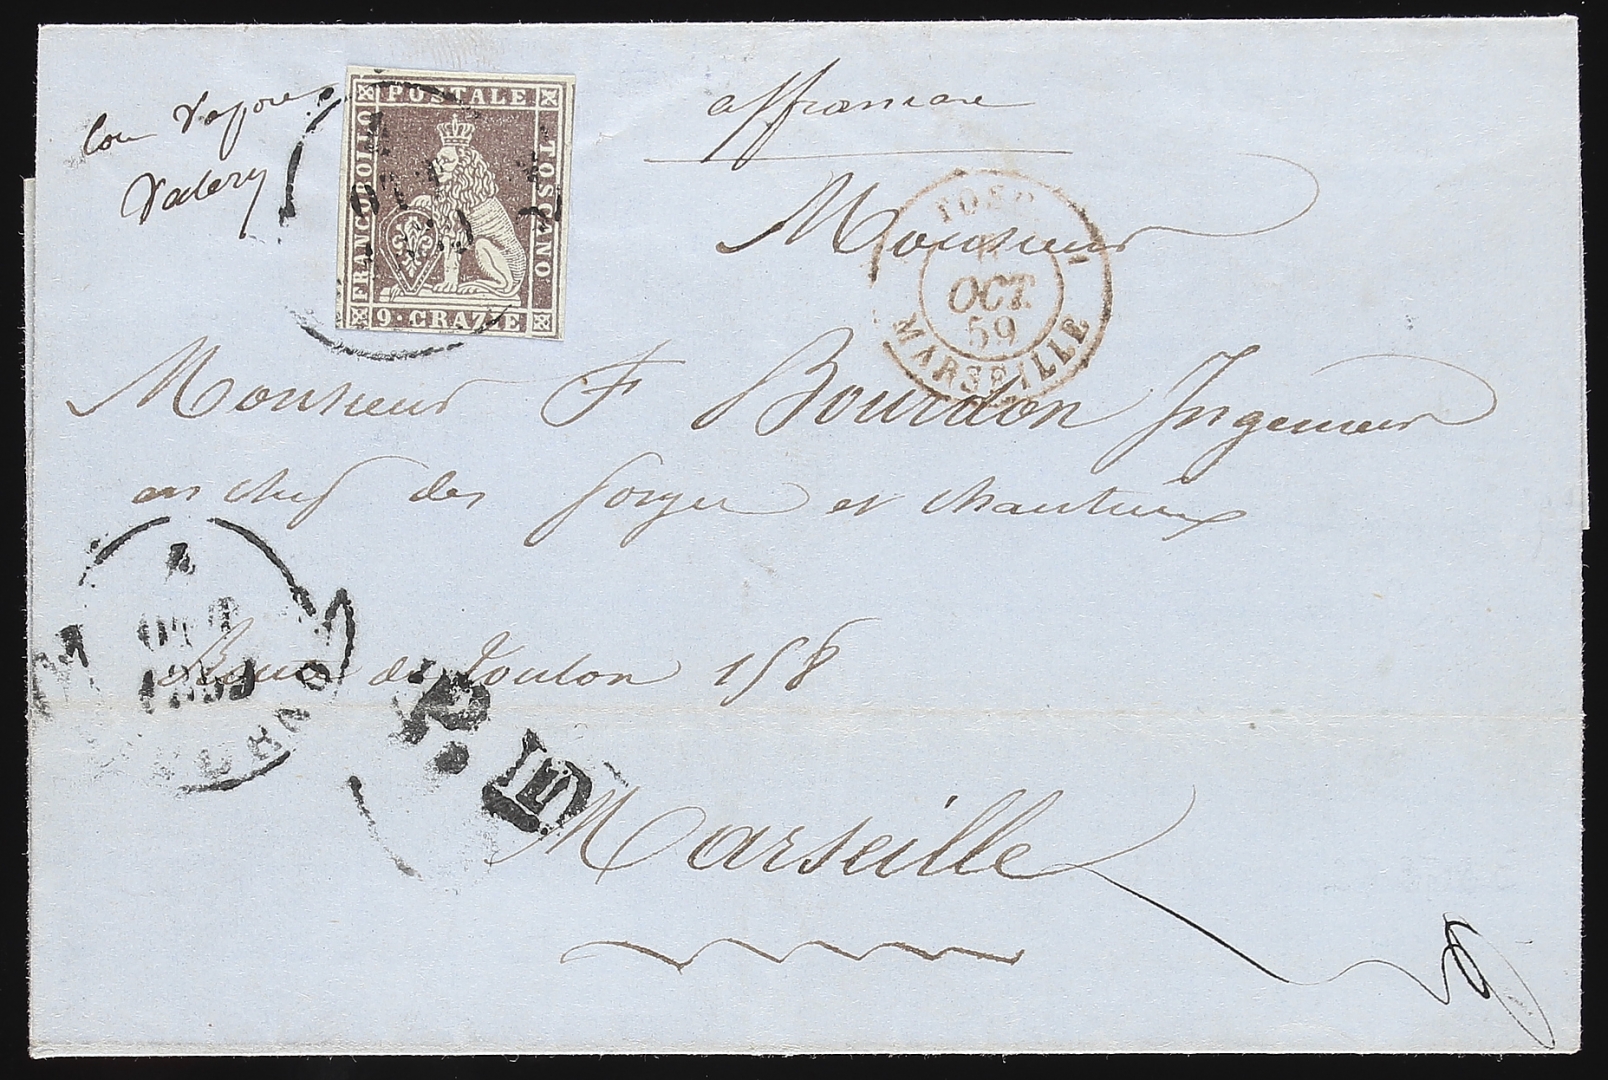 con vapore
Valery
affrancare
FRANCOBOLLO
POSTALE
TOSCANO
9 · CRAZIE
TOSC.
OCT.
59
MARSEILLE
Monsieur
Monsieur F Bourdon Ingenieur
en chef des forges et chantiers
OTT
1859
LIVORNO
de Toulon 158
P.D.
Marseille